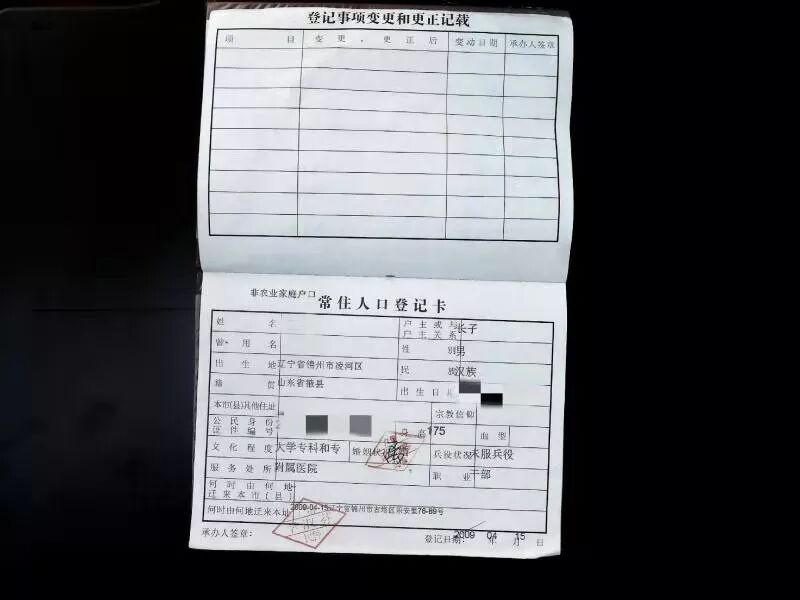 登记事项变更和更正记载
项 目 变更、更正后 变动日期 承办人签章
非农业家庭户口
常住人口登记卡
姓 名 户主或与户主关系 长子
曾用名 性 别 男
出生地 辽宁省锦州市凌河区 民 族 汉族
籍 贯 山东省掖县 出生日期
本市(县)其他住址 宗教信仰
公民身份证件编号 身 高 175 血型
文化程度 大学专科和专 婚姻状况 兵役状况 未服兵役
服务处所 附属医院 职 业 干部
何时由何地迁来本市(县)
何时由何地迁来本址 2009-04-15辽宁省锦州市古塔区
承办人签章: 登记日期: 2009 年 04 月 15 日